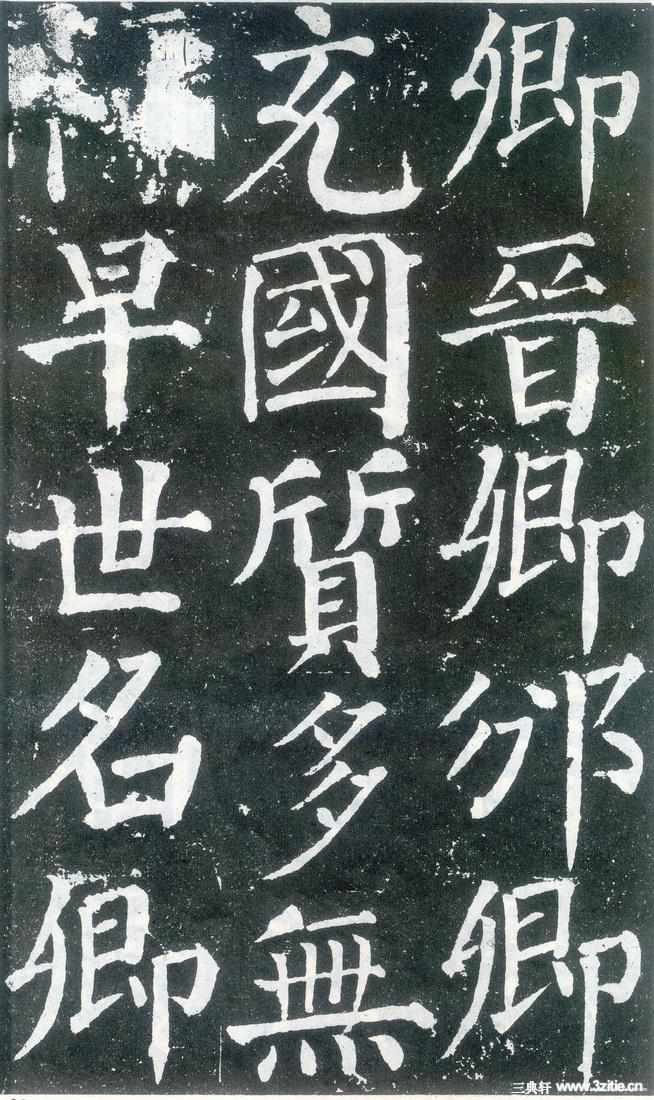 卿晉卿邠卿
充國質多無
早世名卿
三典轩 www.3zitie.cn